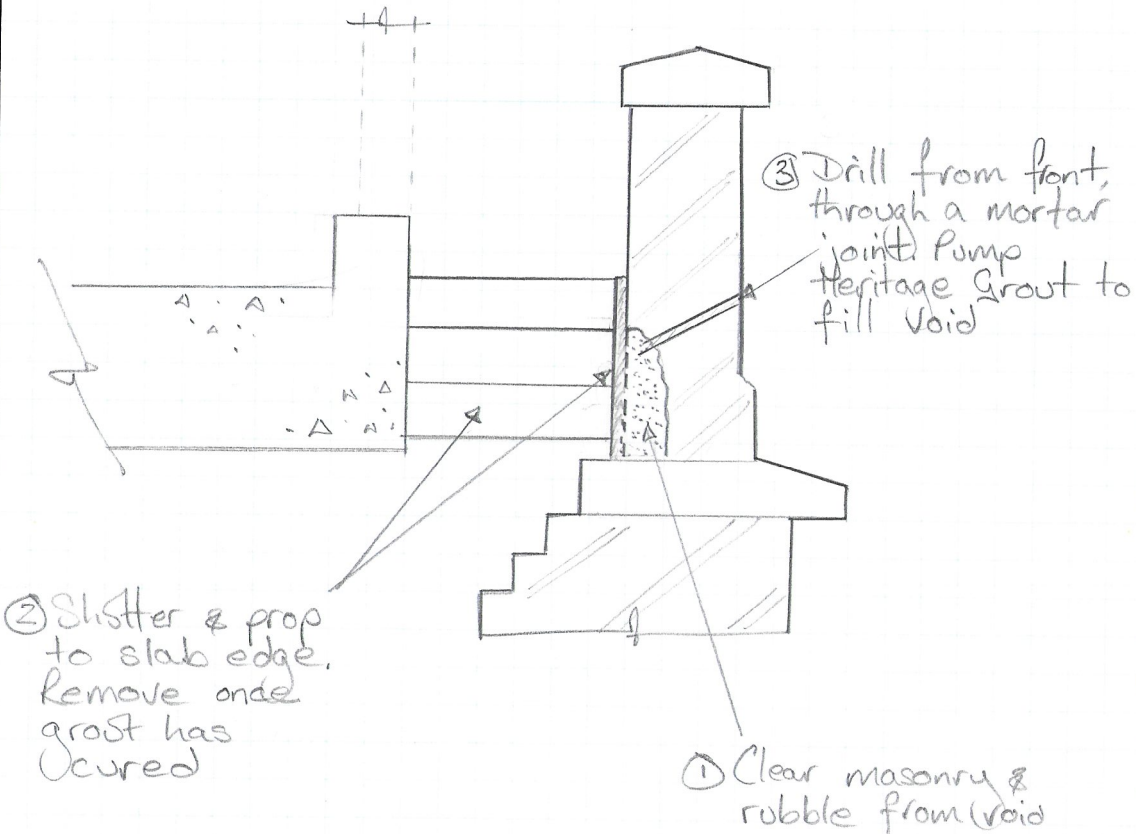 ③ Drill from front,
through a mortar
joint. Pump
Heritage Grout to
fill void
② Shutter & prop
to slab edge.
Remove once
grout has
cured
① Clear masonry &
rubble from void